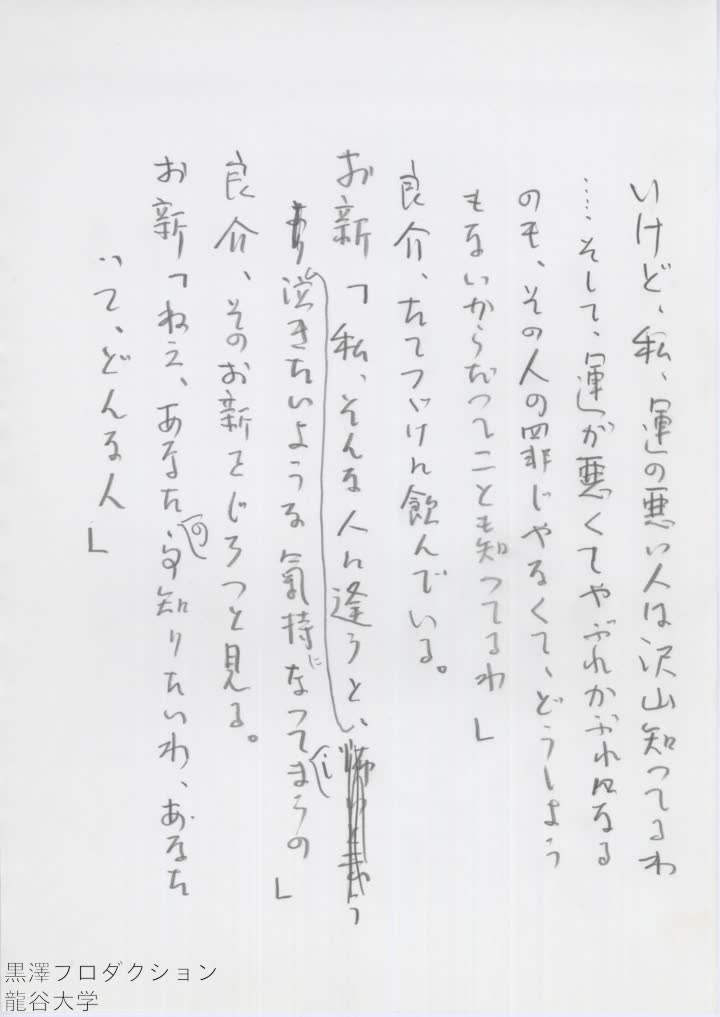 いけど、私、運の悪い人は沢山知つてるわ
……そして、運が悪くてやぶれかぶれになる
のも、その人の罪じやなくて、どうしよう
もないからだつてことも知つてるわ」
良介、たてつゞけに飲んでいる。
お新「私、そんな人に逢うと、
泣きたいような氣持になつてしまうの」
良介、そのお新をじろつと見る。
お新「ねえ、あなたの事知りたいわ、あなた
つて、どんな人」
黒澤プロダクション
龍谷大学